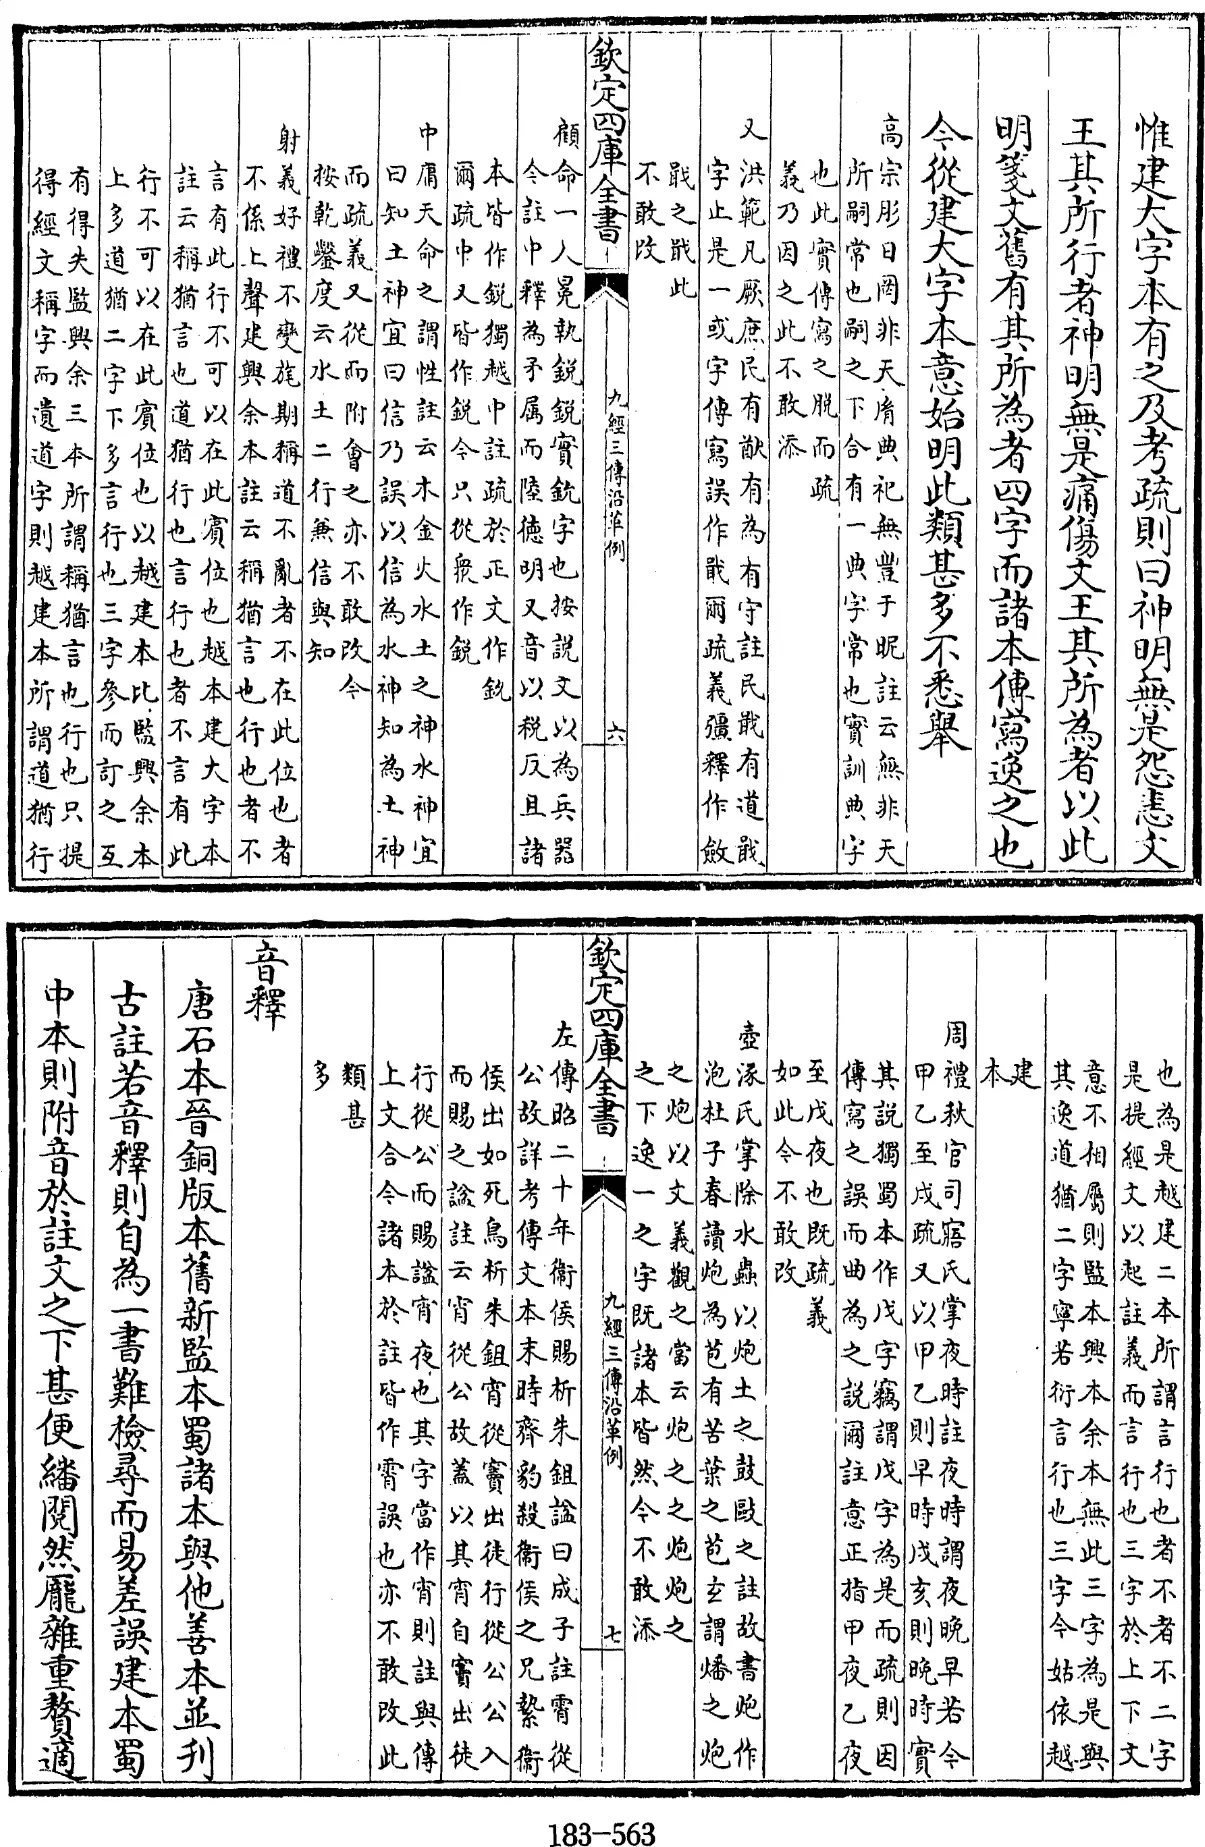 惟建大字本有之及考疏則曰神明無是怨恚文
王其所行者神明無是痛傷文王其所為者以此
明箋文舊有其所為者四字而諸本傳寫逸之也
今從建大字本意始明此類甚多不悉舉
高宗肜日罔非天胤典祀無豐于昵註云無非天
所嗣常也嗣之下合有一典字常也實訓典字
也此實傳寫之脫而疏
義乃因之此不敢添
又洪範凡厥庶民有猷有為有守註民戢有道戢
字止是一或字傳寫誤作戢爾疏義彊釋作斂
戢之戢此
不敢改
欽定四庫全書
九經三傳沿革例
六
顧命一人冕執銳銳實鈗字也按說文以為兵器
今註中釋為矛屬而陸德明又音以稅反且諸
本皆作銳獨越中註疏於正文作鈗
爾疏中又皆作銳今只從衆作銳
中庸天命之謂性註云木金火水土之神水神宜
曰知土神宜曰信乃誤以信為水神知為土神
而疏義又從而附會之亦不敢改今
按乾鑿度云水土二行兼信與知
射義好禮不變旄期稱道不亂者不在此位也者
不係上聲建興余本註云稱猶言也行也者不
言有此行不可以在此賓位也越本建大字本
註云稱猶言也道猶行也言行也者不言有此
行不可以在此賓位也以越建本比監興余本
上多道猶二字下多言行也三字參而訂之互
有得失監興余三本所謂稱猶言也行也只提
得經文稱字而遺道字則越建本所謂道猶行
也為是越建二本所謂言行也者不者不二字
是提經文以起註義而言行也三字於上下文
意不相屬則監本興本余本無此三字為是與
其逸道猶二字寧若衍言行也三字今姑依越
建
本
周禮秋官司寤氏掌夜時註夜時謂夜晚早若今
甲乙至戌疏又以甲乙則早時戌亥則晚時實
其說獨蜀本作戊字竊謂戊字為是而疏則因
傳寫之誤而曲為之說爾註意正指甲夜乙夜
至戊夜也既疏義
如此今不敢改
壺涿氏掌除水蟲以炮土之鼓敺之註故書炮作
泡杜子春讀炮為苞有苦葉之苞玄謂燔之炮
之炮以文義觀之當云炮之之炮炮之
之下逸一之字既諸本皆然今不敢添
欽定四庫全書
九經三傳沿革例
七
左傳昭二十年衞侯賜析朱鉏謚曰成子註霄從
公故詳考傳文本末時齊豹殺衞侯之兄縶衞
侯出如死鳥析朱鉏宵從竇出徒行從公公入
而賜之謚註云宵從公故蓋以其宵自竇出徒
行從公而賜謚宵夜也其字當作宵則註與傳
上文合今諸本於註皆作霄誤也亦不敢改此
類甚
多
音釋
唐石本晉銅版本舊新監本蜀諸本與他善本並刊
古註若音釋則自為一書難檢尋而易差誤建本蜀
中本則附音於註文之下甚便繙閱然龐雜重贅適
183-563